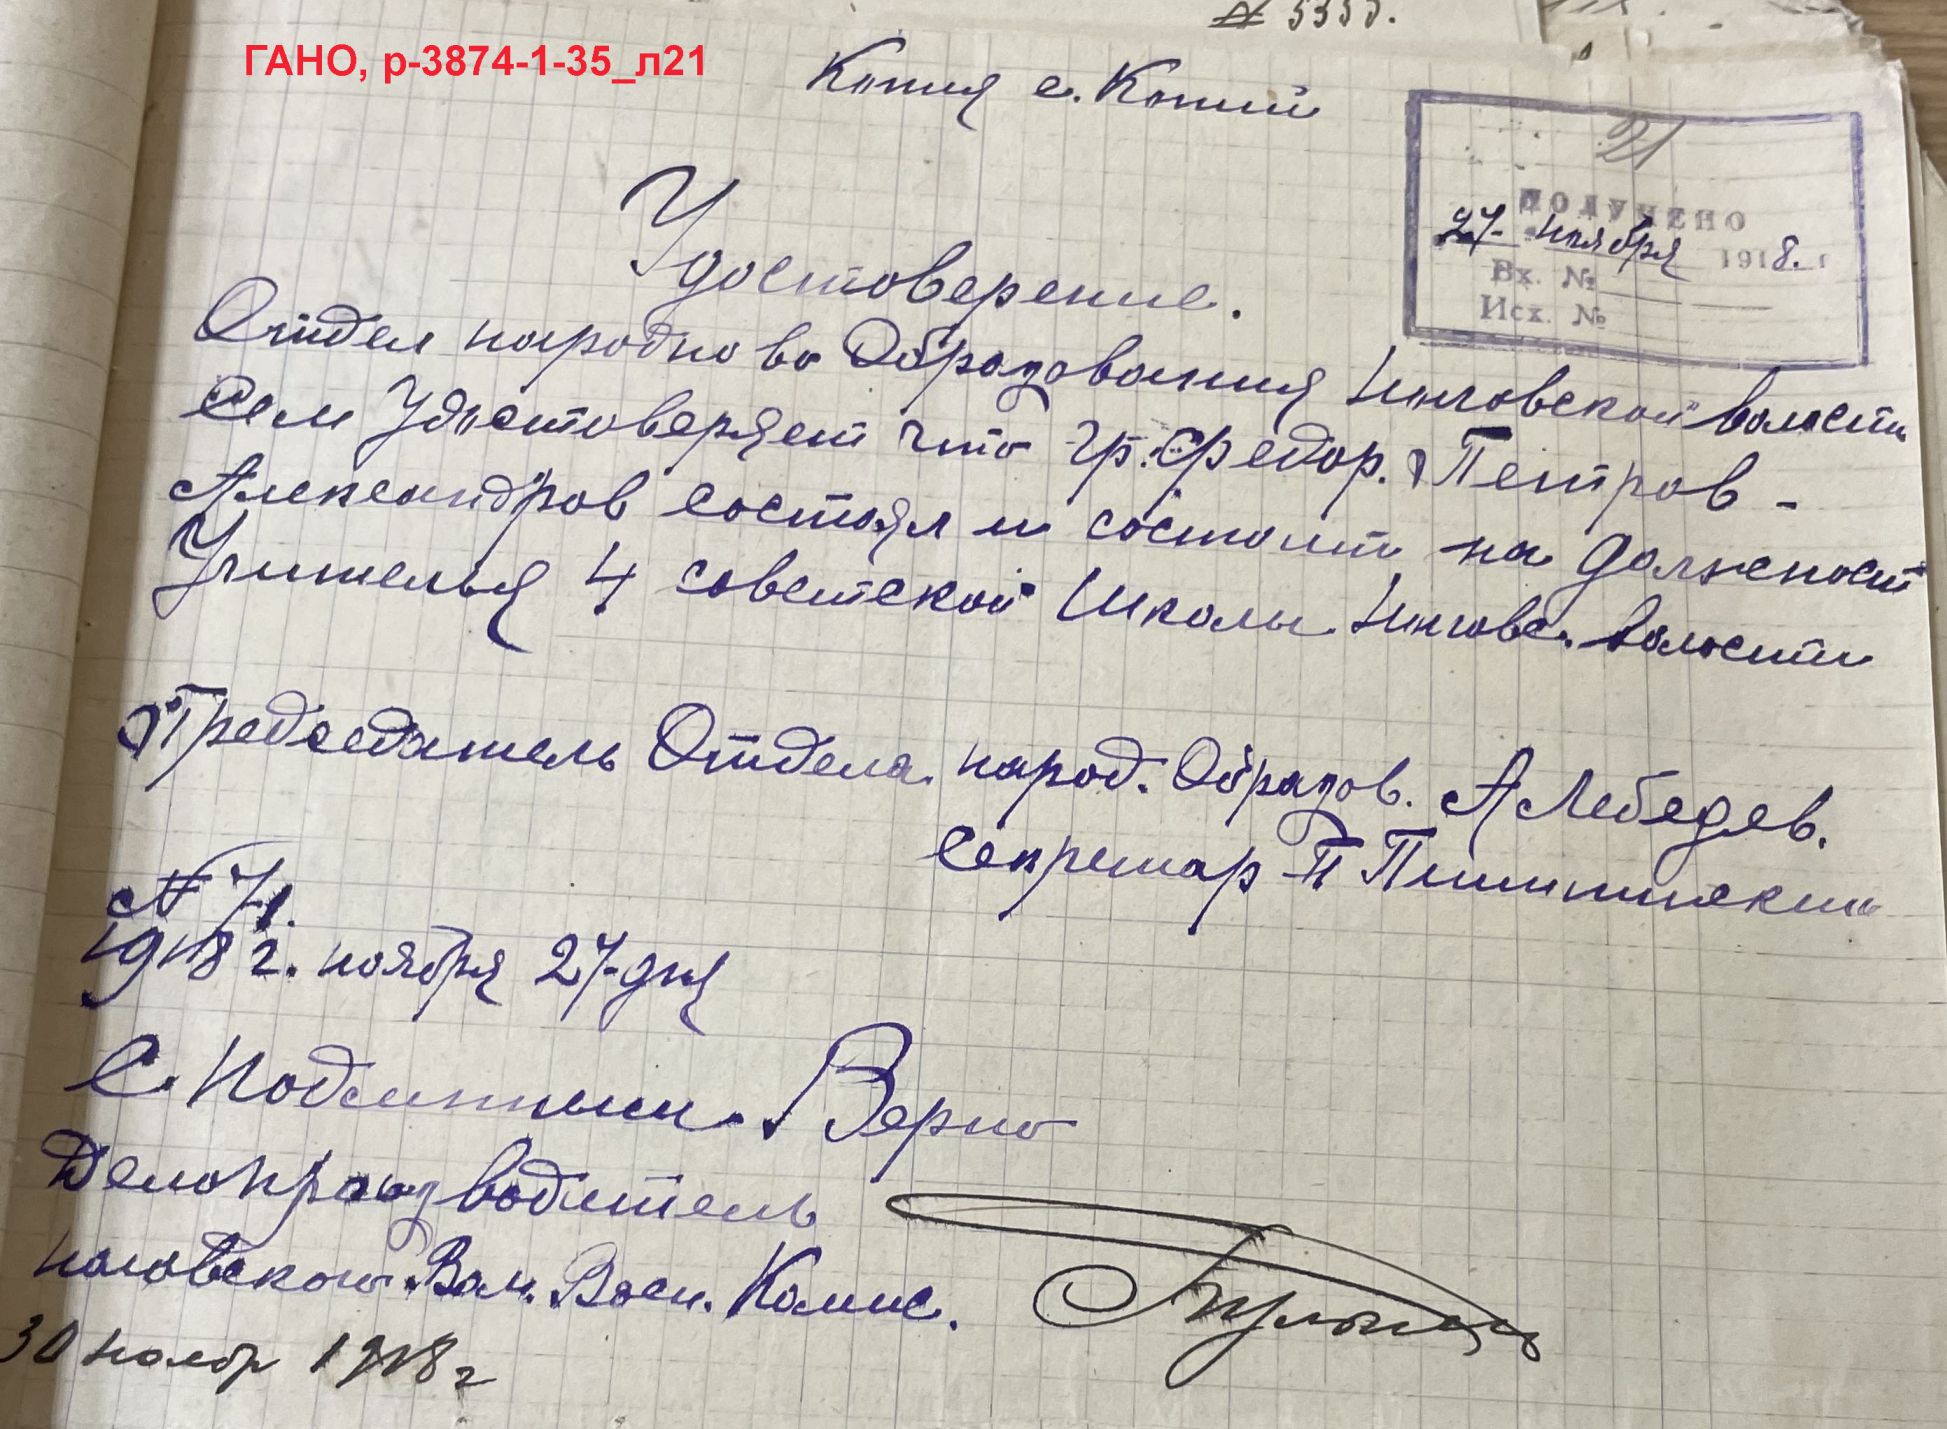 № 5355.
ГАНО, р-3874-1-35_л21
Копия с. Копии
21
ПОЛУЧЕНО
27- ноября 1918. г
Вх. №
Исх. №
Удостоверение.
Отдел народново Образования Ногавской волости
Сем Удостоверяет что гр. Федор. Петров -
Александров состоял и состоит на должност
Учителья 4 советской Школы. Ногавс. волости
Председатель Отдела. народ. Образов. А Лебедев.
Секретар П
№ 71.
1918 г. ноября 27-дня
С. Подлинным. Верно
Делопроизводитель
Вол. Воен. Комис.
30 ноябр 1918 г